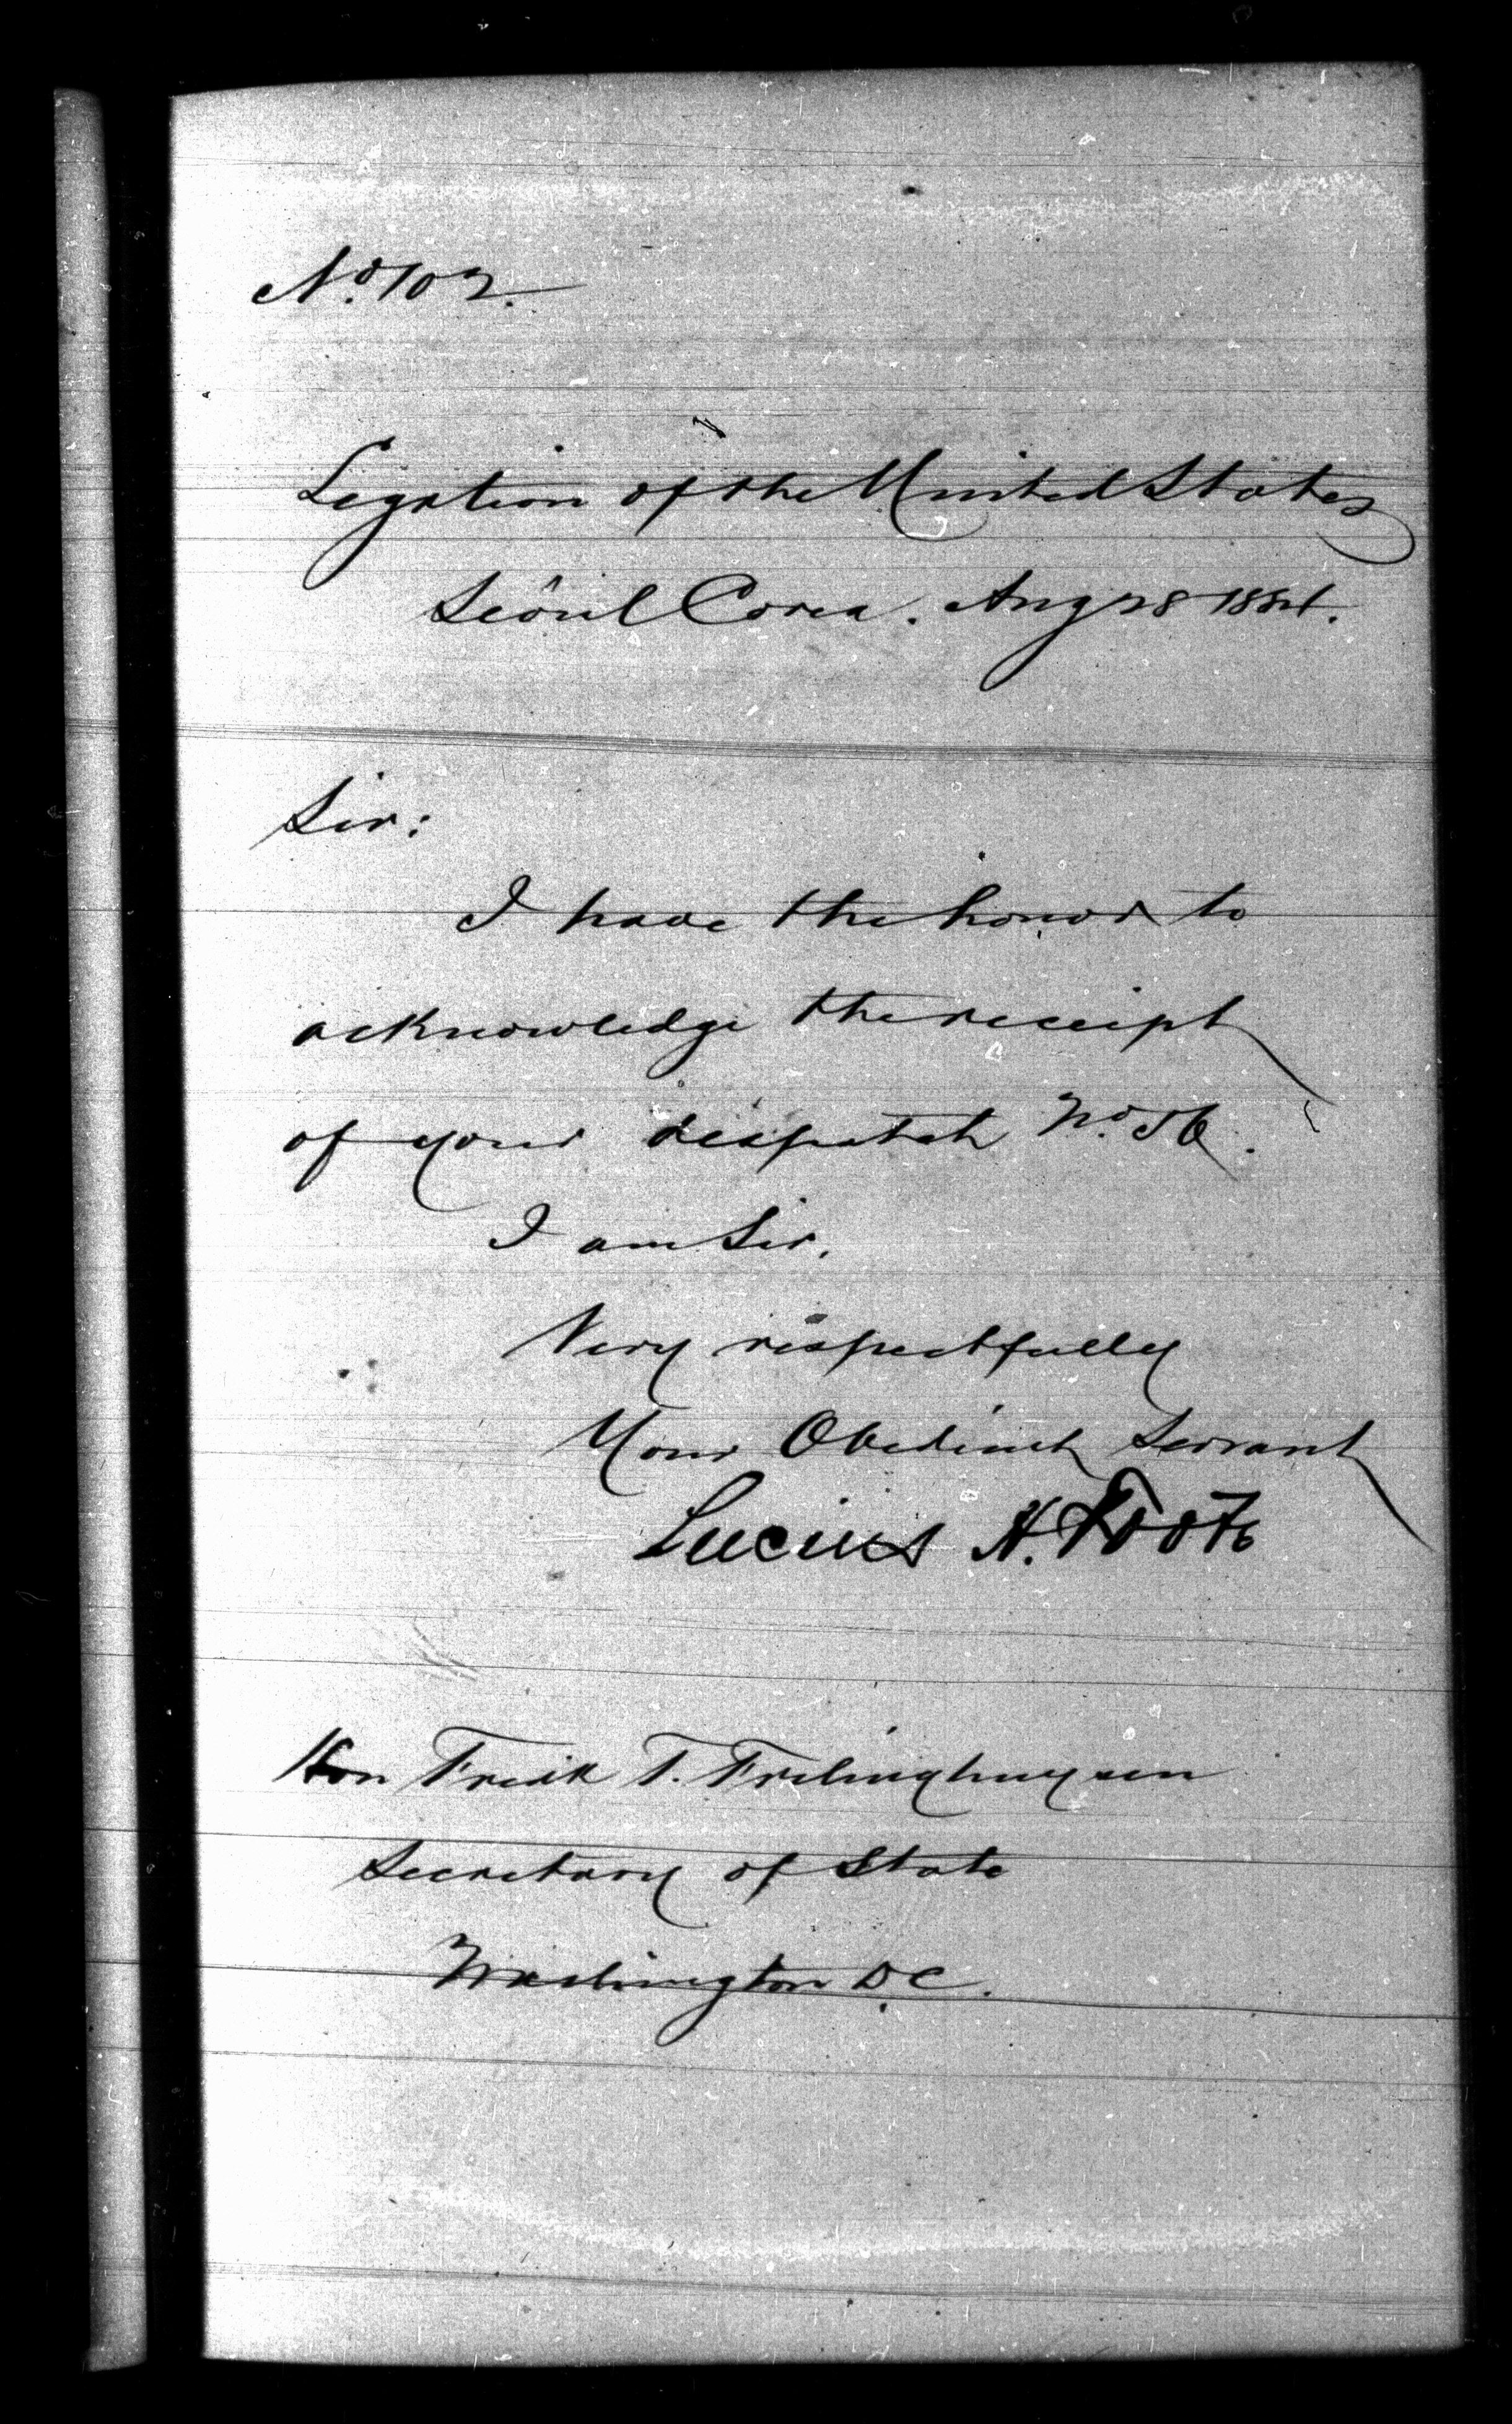 No. 102.
Legation of the United States
Seoul Corea. Aug 28 1884.
Sir:
I have the honor to
acknowledge the receipt
of your dispatch No. 56.
I am Sir.
Very respectfully
Your Obedient Servant
Lucius H. Foote
Hon Fredk T. Frelinghuysen
Secretary of State
Washington D.C.